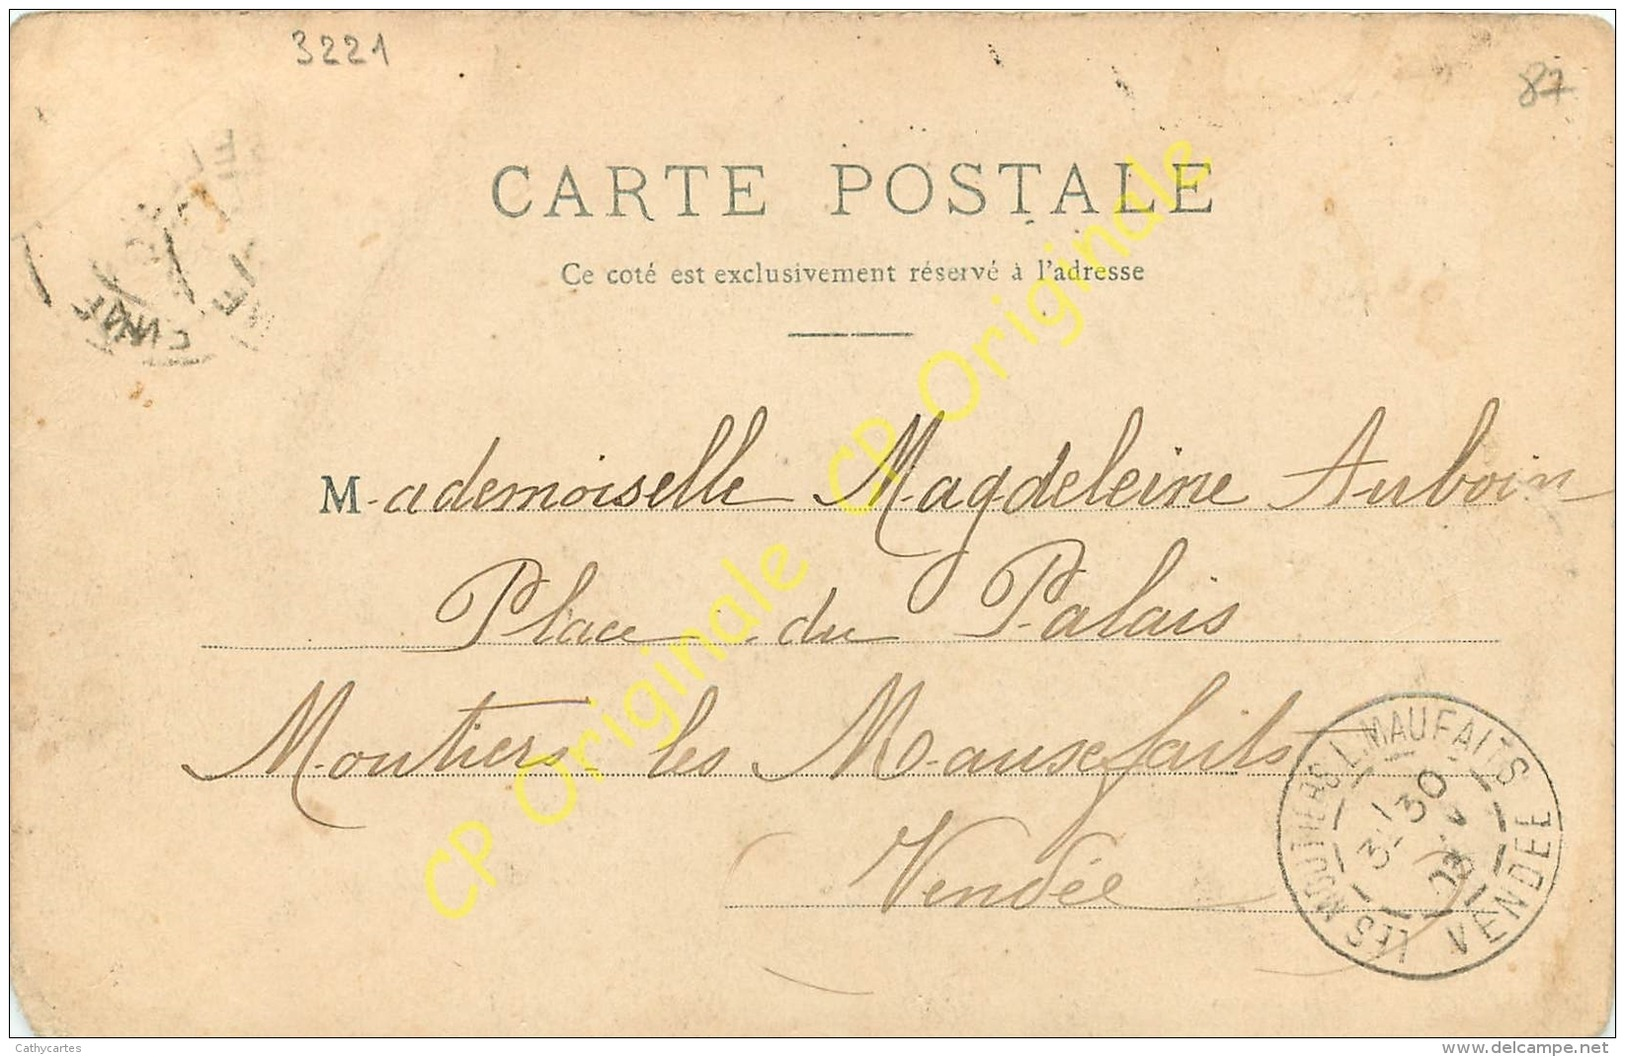 3221
87
CARTE POSTALE
Ce coté est exclusivement réservé à l'adresse
Mademoiselle Magdeleine Auboin
Place du Palais
Moutiers les Mauxfaits
Vendée
LES MOUTIERS L. MAUFAITS
VENDÉE
30
03
CP Originale CP Originale CP Originale
Cathycartes
www.delcampe.net